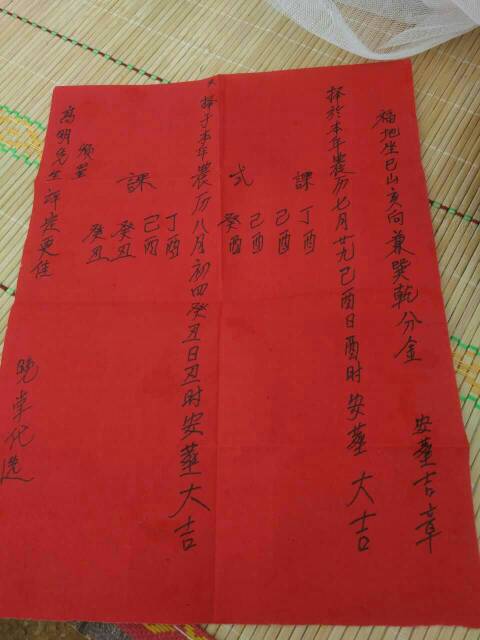 福地坐巳山亥向兼巽乾分金
安塟吉章
择於本年農历七月廿九己酉日酉时安塟大吉
課
丁酉
己酉
式
己酉
癸酉
择于本年農历八月初四癸丑日丑时安塟大吉
丁酉
己酉
課
癸丑
癸丑
烦呈
高明先生评定更佳
晚学代选